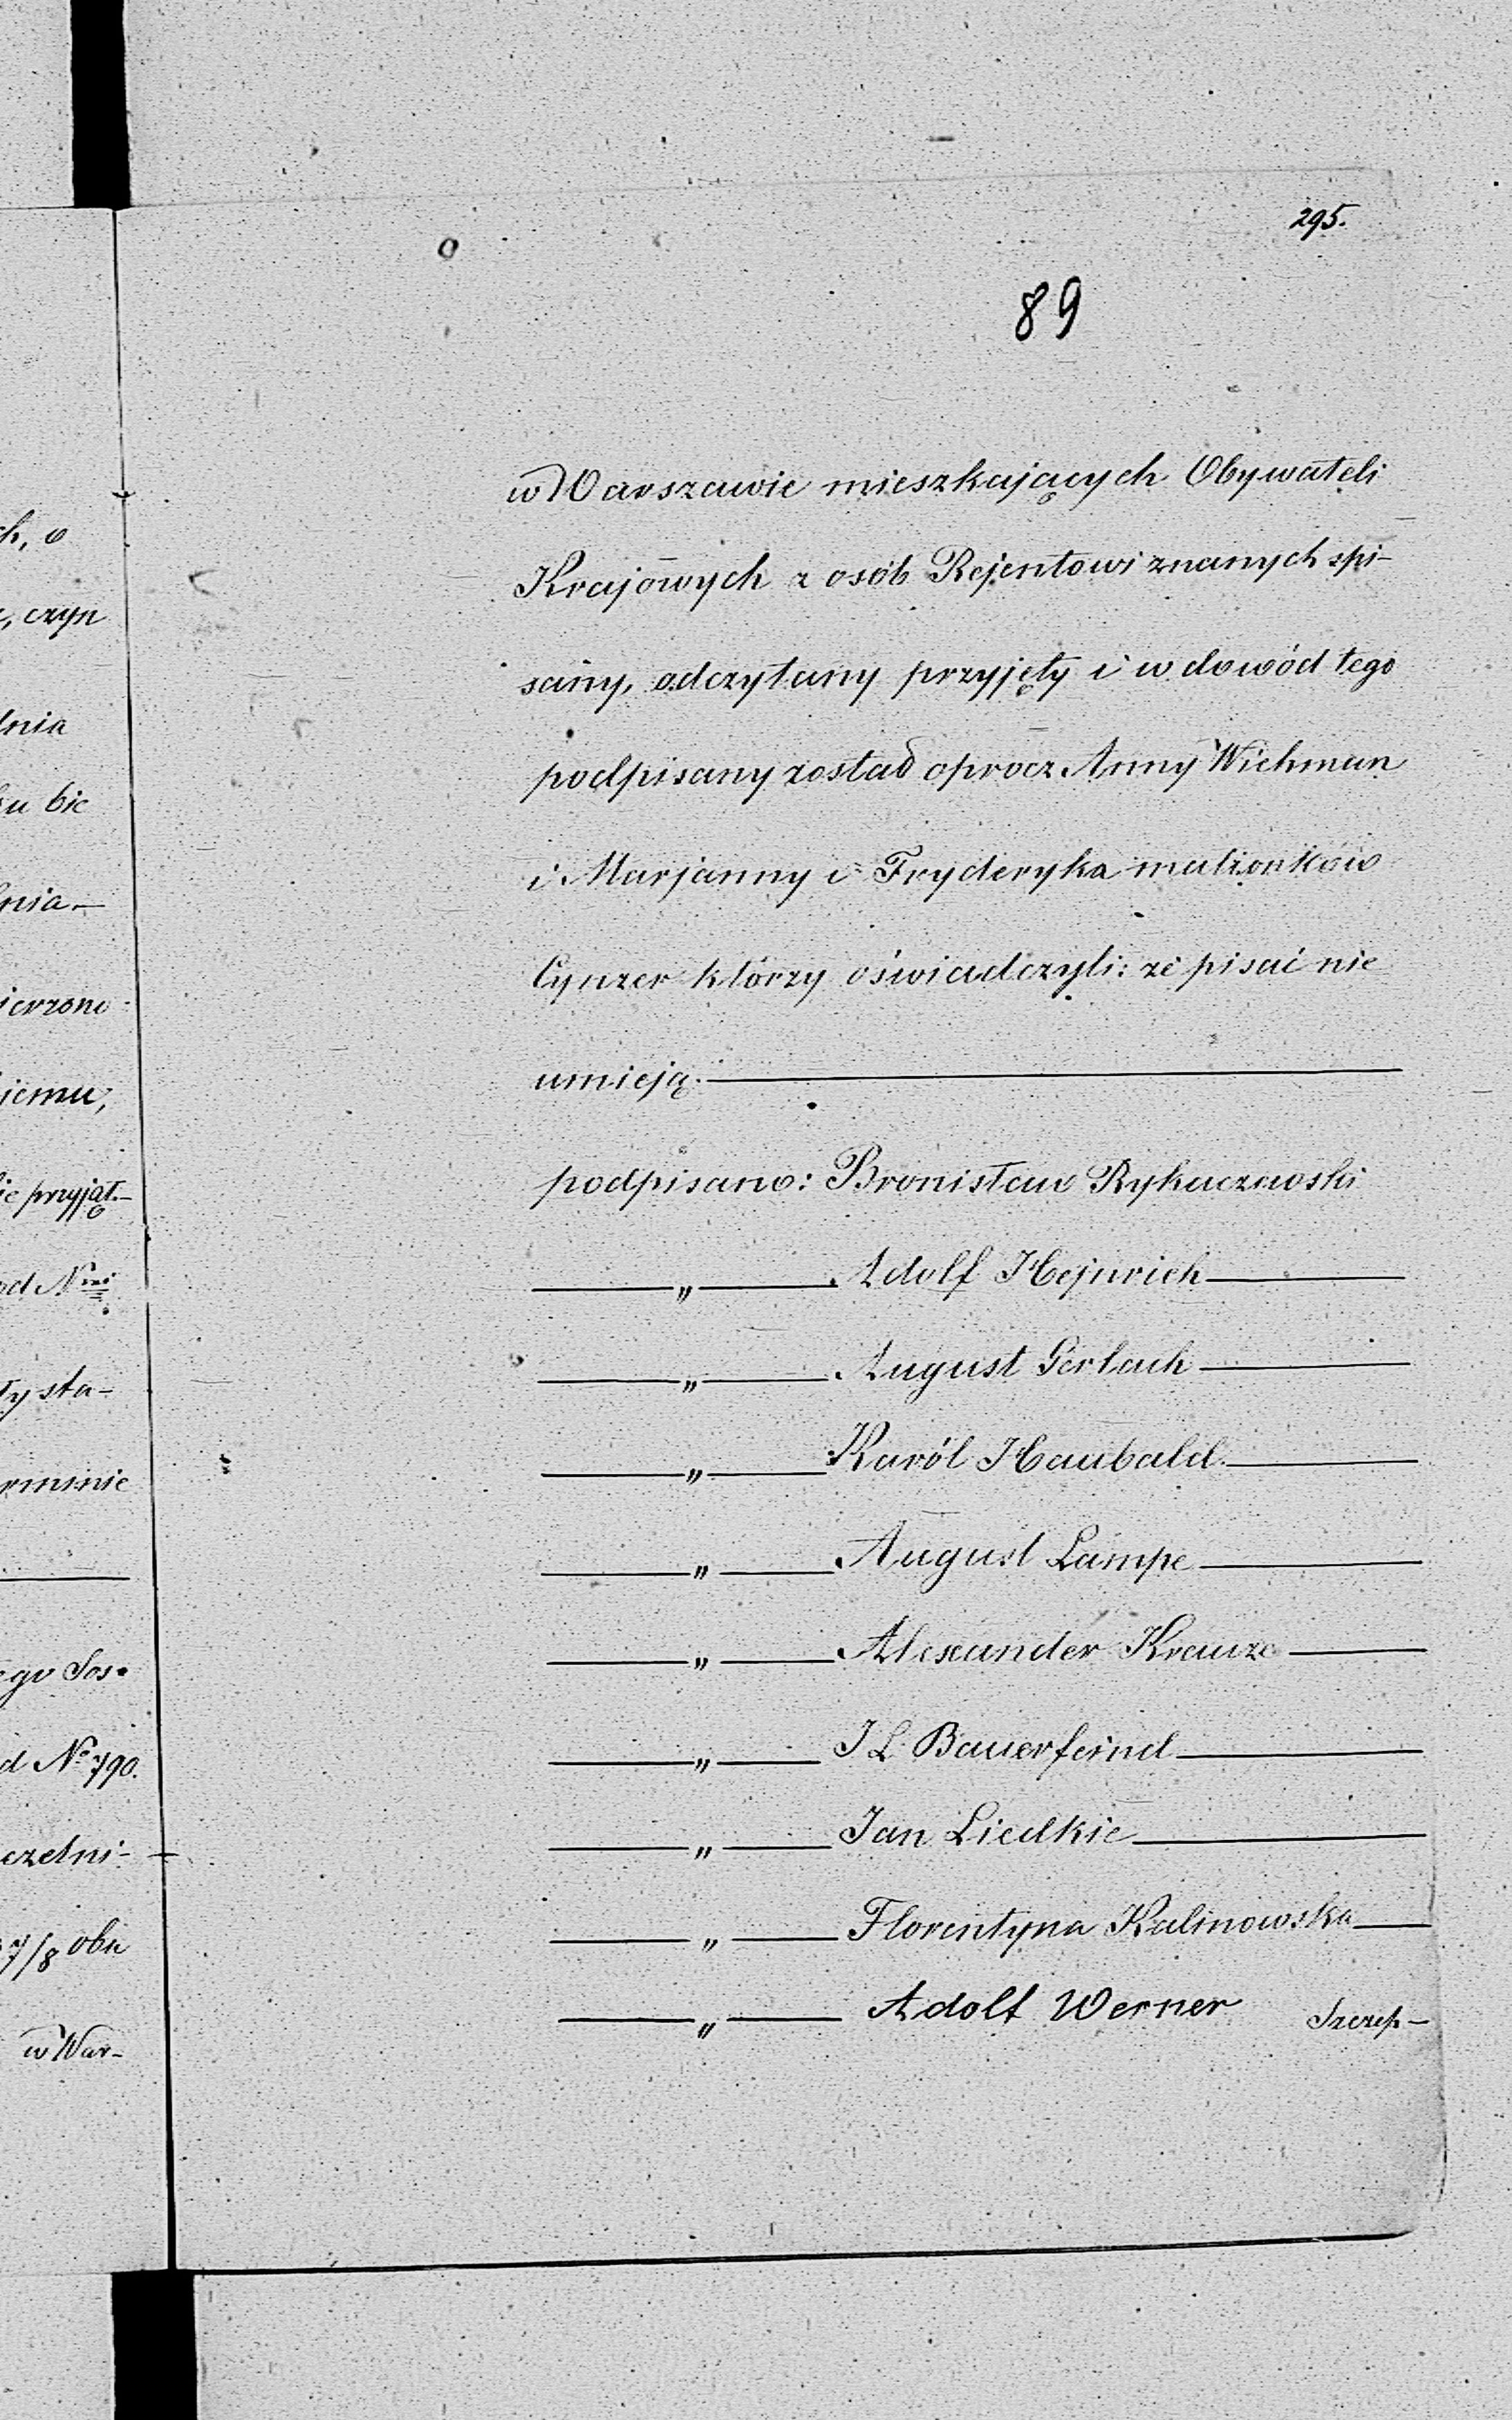 295.
89
w Warszawie mieszkających Obywateli
Krajowych z osób Rejentowi znanych spi-
sany, odczytany przyjęty i w dowód tego
podpisany został oprócz Anny Wichman
i Marjanny i Fryderyka małżonków
Cynzer którzy oświadczyli: że pisać nie
umieją.
podpisano: Bronisław Rykaczewski
„ Adolf Hejnrich
„ August Gerlach
„ Karól Haubald
„ August Lampe
„ Alexander Krauze
„ J L Bauerfeind
„ Jan Liedkie
„ Florentyna Kalinowska
„ Adolf Werner Szczep-
ch, o
, czyn
dnia
bie
nia
ierzone
iemu,
ie przyjął.
od Nrmi
ty sta-
rminie
ego Sos
d No 790.
czelni-
7/8 oba
w War-